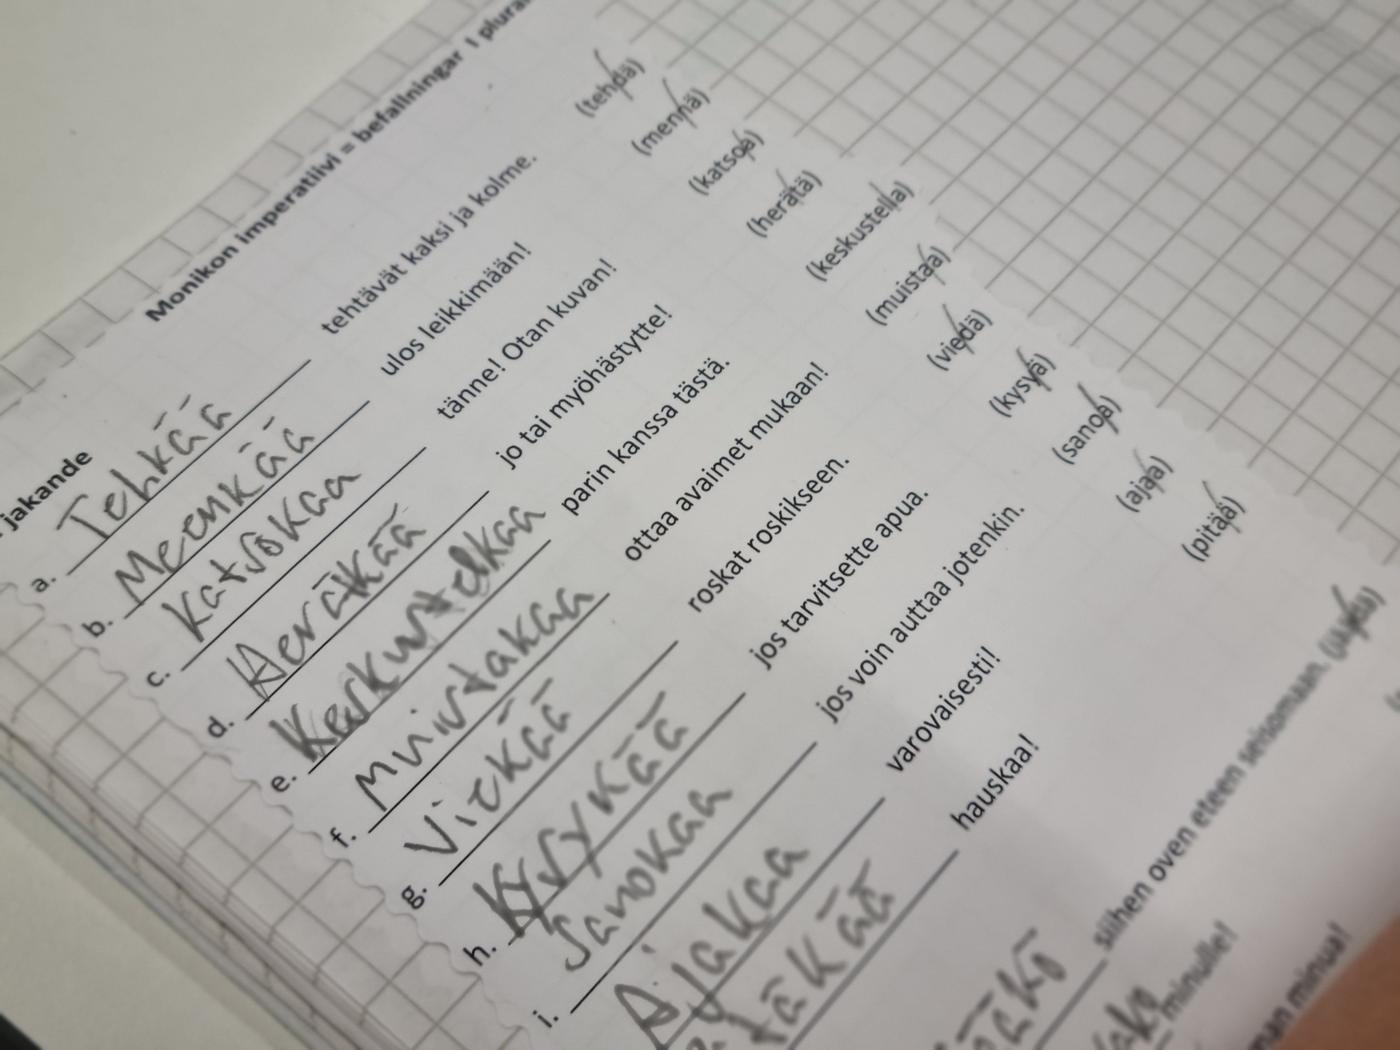 Monikon imperatiivi = befallningar i plural
jakande
a. Tehkää tehtävät kaksi ja kolme. (tehdä)
b. Meenkää ulos leikkimään! (mennä)
c. Katsokaa tänne! Otan kuvan! (katsoa)
d. Herätkää jo tai myöhästytte! (herätä)
e. Keskustelkaa parin kanssa tästä. (keskustella)
f. Muistakaa ottaa avaimet mukaan! (muistaa)
g. Viekää roskat roskikseen. (viedä)
h. Kysykää jos tarvitsette apua. (kysyä)
i. Sanokaa jos voin auttaa jotenkin. (sanoa)
Ajakaa varovaisesti! (ajaa)
täkää hauskaa! (pitää)
siihen oven eteen seisomaan.
minulle!
minua!